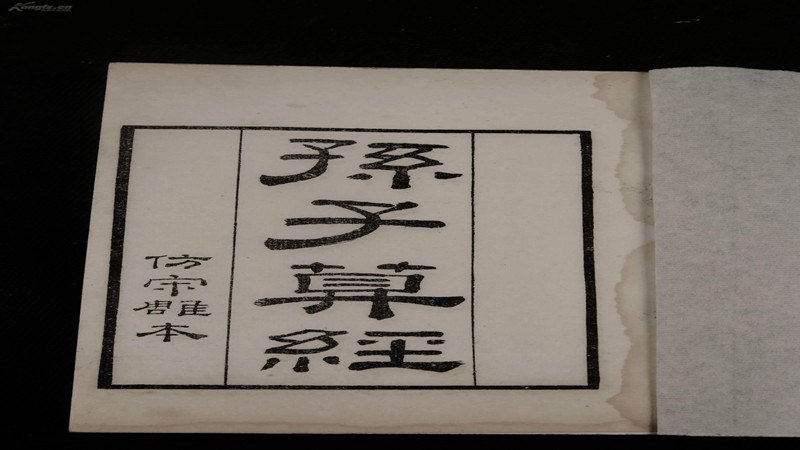 孫子算經
仿宋雕本
Kongfz.cn